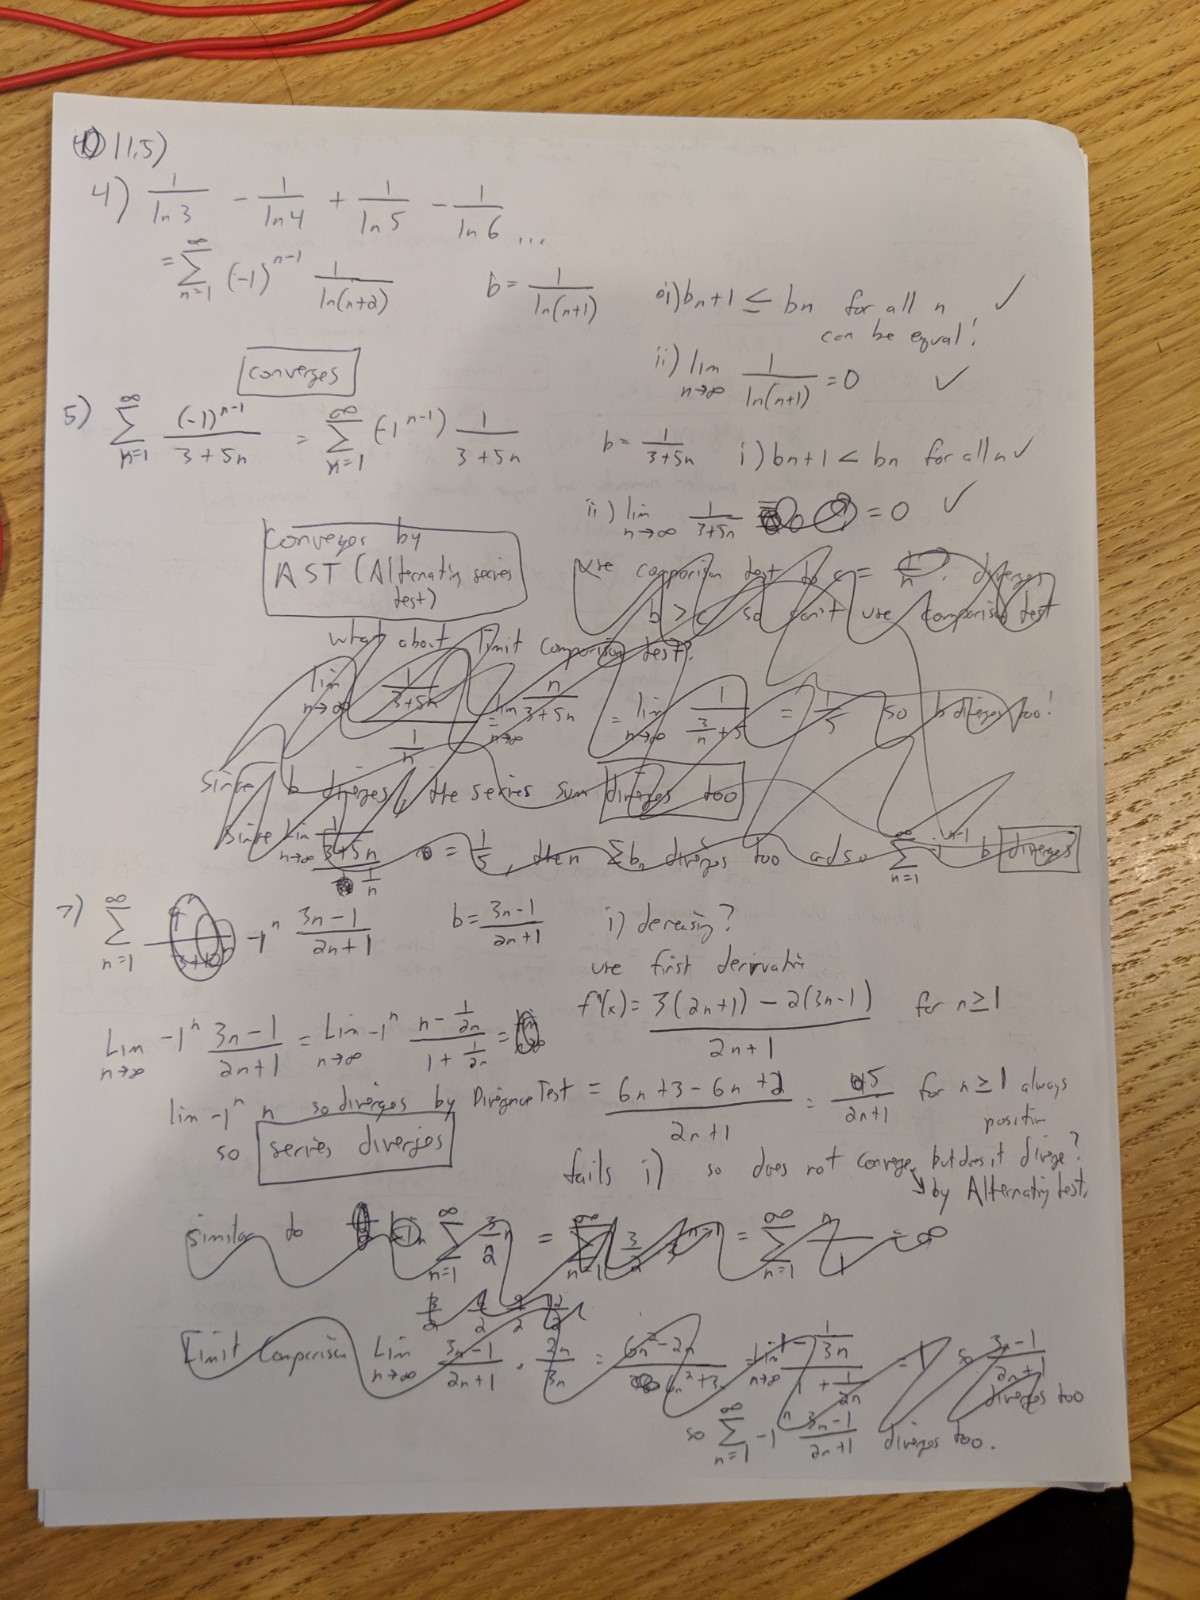 11.5)
4) 1/ln 3 - 1/ln 4 + 1/ln 5 - 1/ln 6 ...
= ∞Σn=1 (-1)^n-1 1/ln(n+2) b = 1/ln(n+1) i) bn+1 ≤ bn for all n ✓
can be equal!
converges ii) lim n→∞ 1/ln(n+1) = 0 ✓
5) ∞Σn=1 (-1)^n-1/3+5n = ∞Σn=1 (-1^n-1) 1/3+5n b = 1/3+5n i) bn+1 < bn for all n ✓
ii) lim n→∞ 1/3+5n = 0 ✓
converges by
AST (Alternating series
test)
use comparison test to c = 1/n, diverges
b > c so can't use comparison test
what about limit comparison test?
lim n→∞ 1/3+5n / 1/n = lim n→∞ n/3+5n = lim n→∞ 1/3/n+5 = 1/5 so b diverges too!
since b diverges, the series sum diverges too
since lim n→∞ 1/3+5n / 1/n = 1/5, then Σbn diverges too and so ∞Σn=1 -1^n-1 b diverges
7) ∞Σn=1 -1^n 3n-1/2n+1 b = 3n-1/2n+1 i) decreasing?
use first derivative
f'(x) = 3(2n+1) - 2(3n-1)/2n+1 for n≥1
Lim n→∞ -1^n 3n-1/2n+1 = Lim n→∞ -1^n n - 1/2n / 1 + 1/2n =
lim -1^n n so diverges by Divergence Test = 6n+3-6n+2/2n+1 = 5/2n+1 for n≥1 always
positive
so series diverges
fails i) so does not converge, but does it diverge?
by Alternating test.
similar to ∞Σn=1 3/2 n = ∞Σn=1 3/2 = ∞Σn=1 n/1 = ∞
Limit Comparison Lim n→∞ 3n-1/2n+1 · 2n/3n = 6n²-2n/6n²+3n = lim n→∞ 1 - 1/3n / 1 + 1/2n = 1 so 3n-1/2n+1
diverges too
so ∞Σn=1 -1^n 3n-1/2n+1 diverges too.